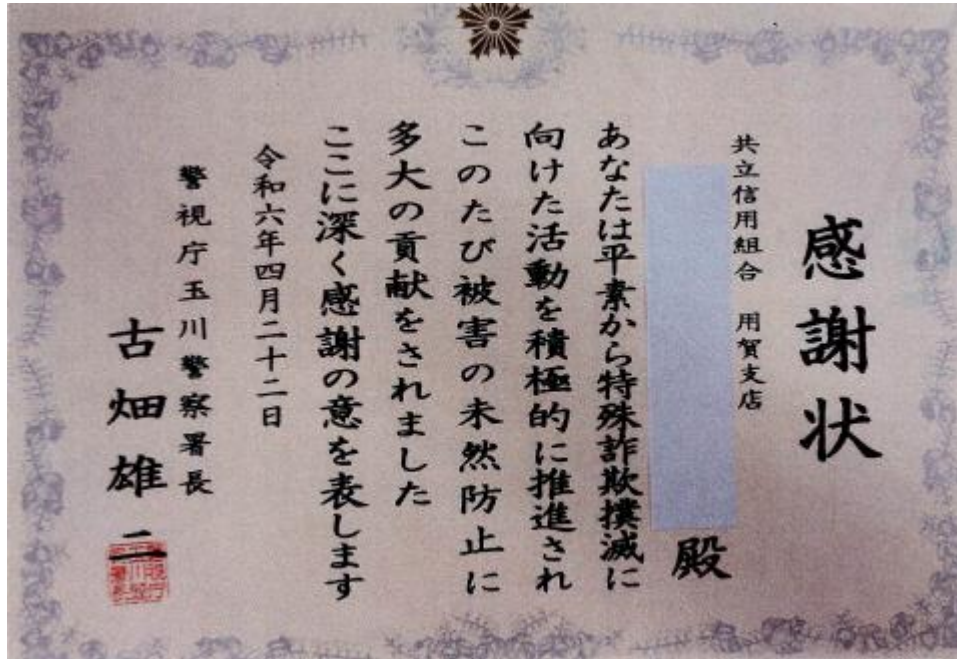 感謝状
共立信用組合 用賀支店
殿
あなたは平素から特殊詐欺撲滅に
向けた活動を積極的に推進され
このたび被害の未然防止に
多大の貢献をされました
ここに深く感謝の意を表します
令和六年四月二十二日
警視庁玉川警察署長
古畑雄二